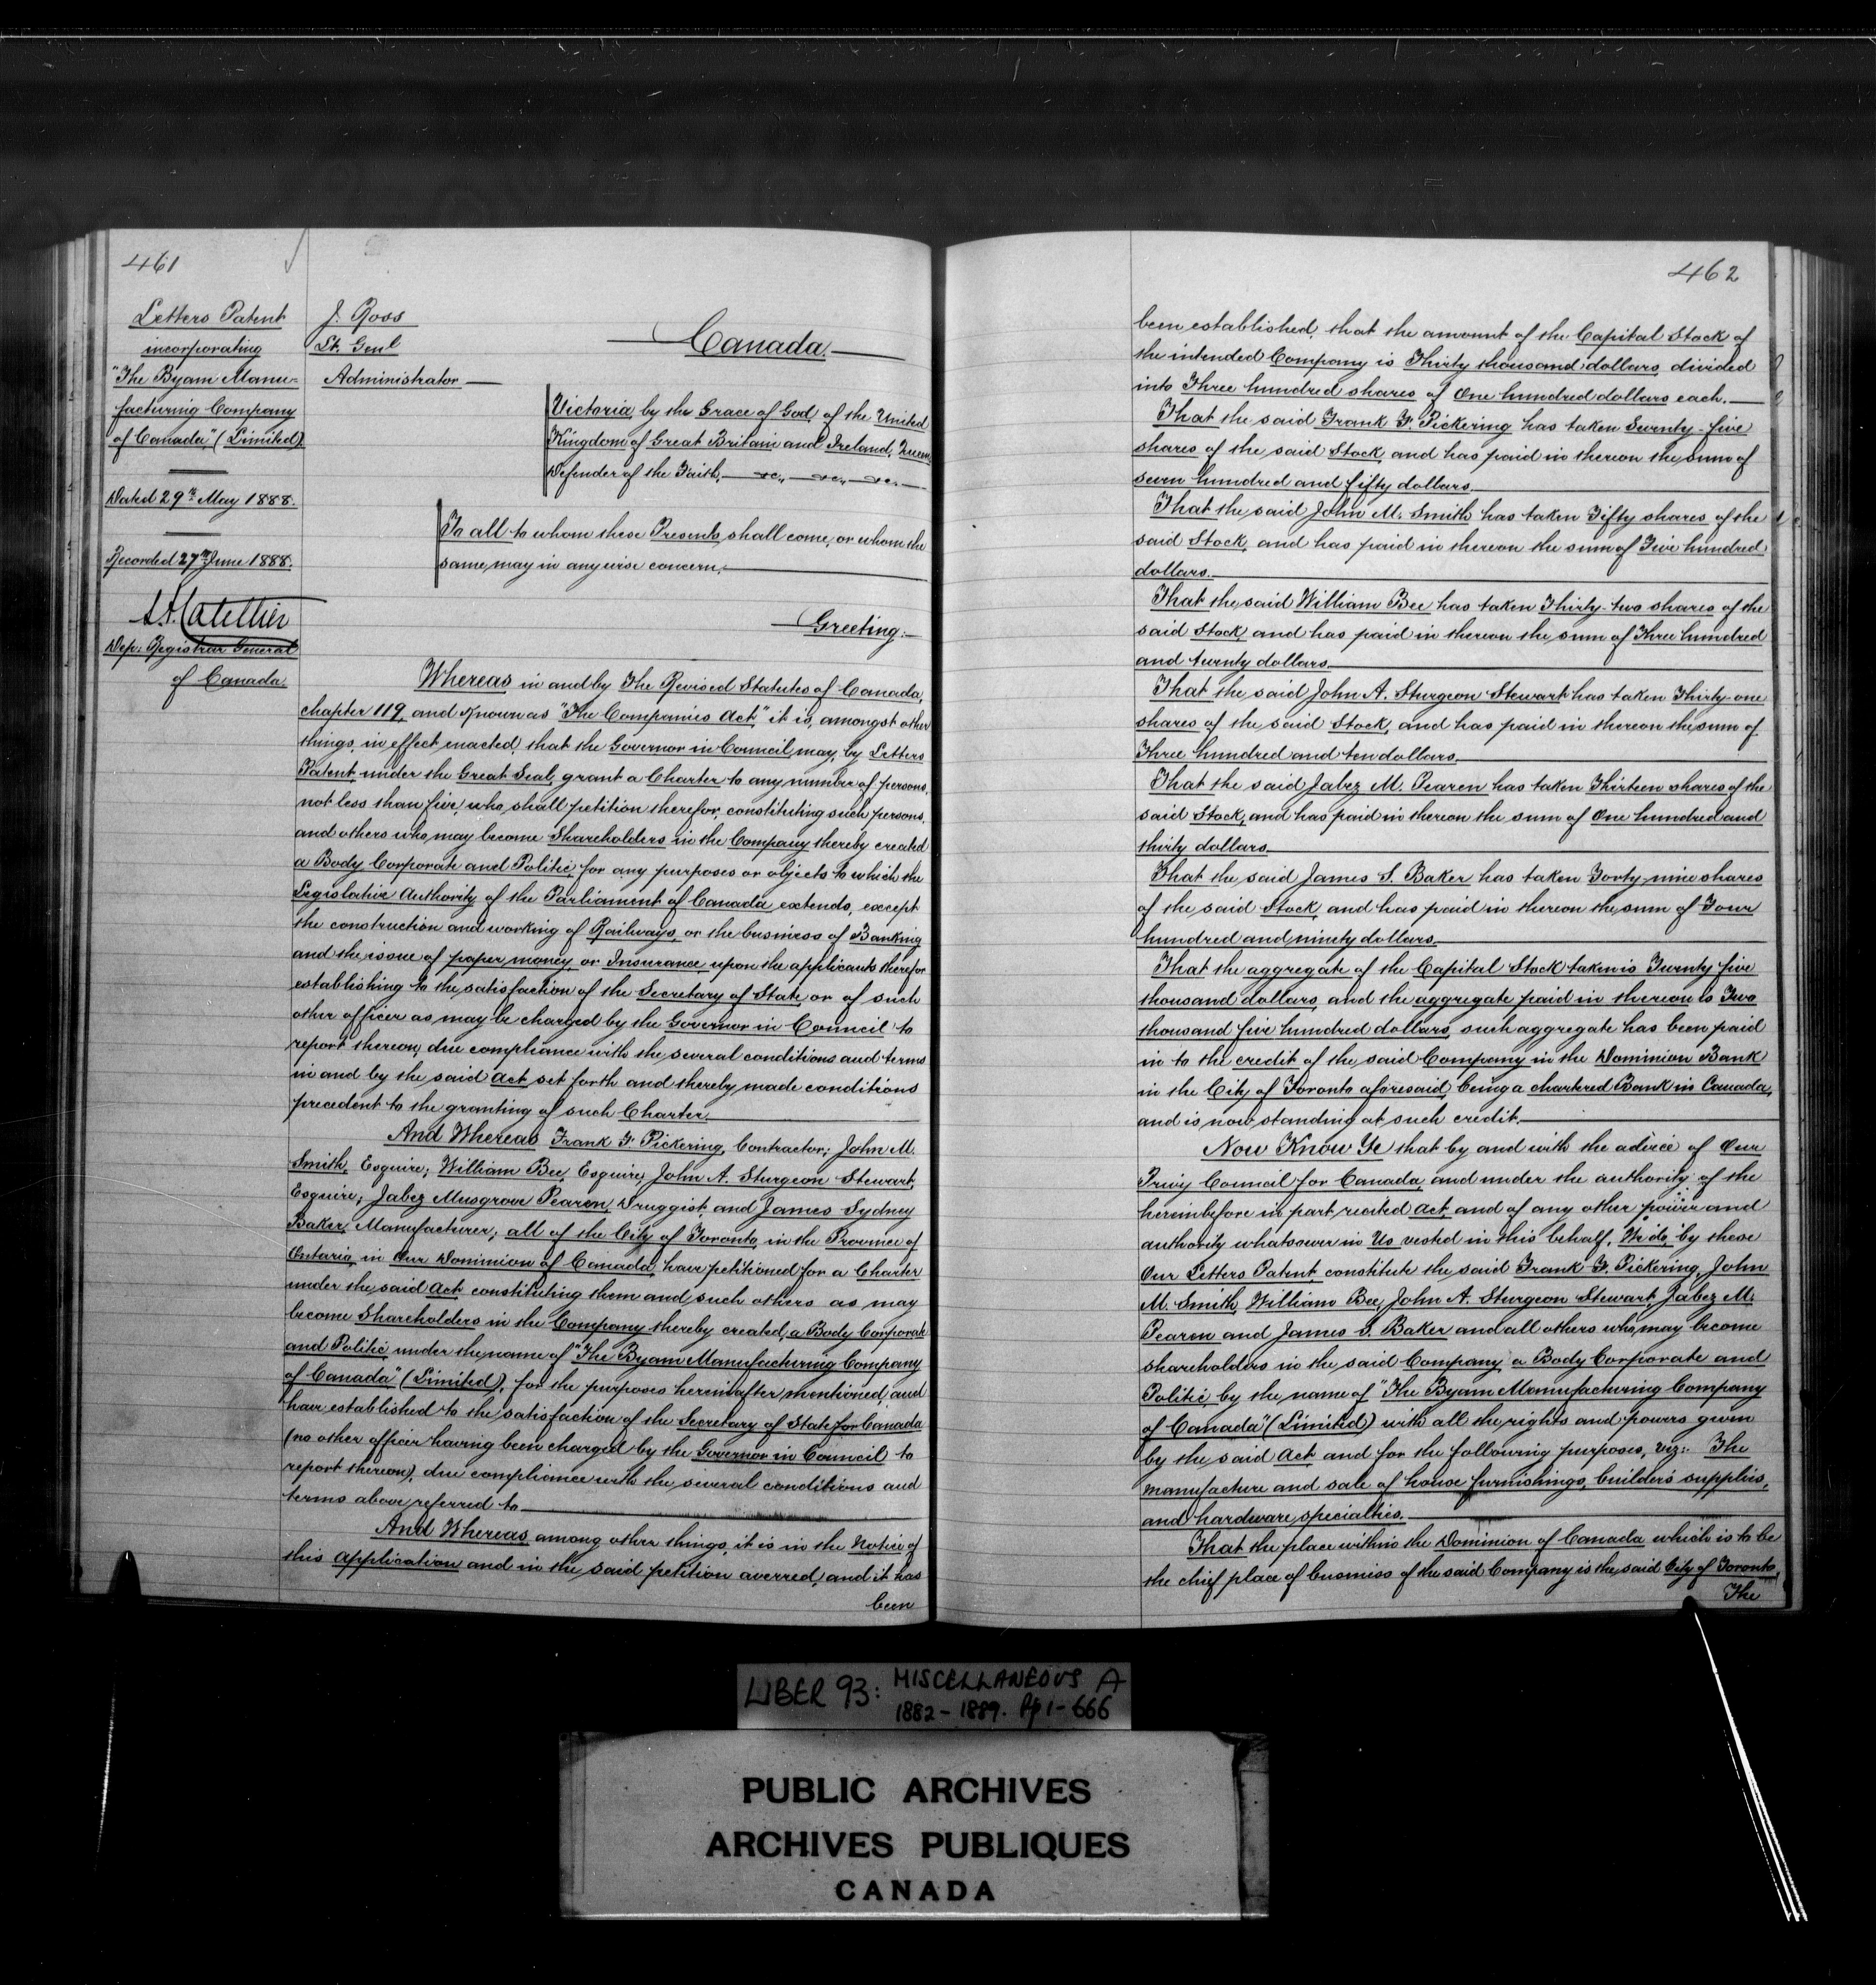 461
Letters Patent
incorporating
"The Byam Manu-
facturing Company
of Canada," (Limited)
Dated 29th May 1888.
Recorded 27th June 1888.
Dep. Registrar General
of Canada.
J. Ross
Lt. Genl
Administrator
Canada.
Victoria, by the Grace of God, of the United
Kingdom of Great Britain and Ireland, Queen
Defender of the Faith, &c., &c., &c.
To all to whom these Presents shall come, or whom the
same may in anywise concern,
Greeting:
Whereas in and by The Revised Statutes of Canada,
chapter 119, and known as "The Companies Act," it is, amongst other
things, in effect enacted, that the Governor in Council may, by Letters
Patent under the Great Seal, grant a Charter to any number of persons,
not less than five, who shall petition therefor, constituting such persons,
and others who may become Shareholders in the Company thereby created
a Body Corporate and Politic, for any purposes or objects to which the
Legislative Authority of the Parliament of Canada extends, except
the construction and working of Railways, or the business of Banking
and the issue of paper money, or Insurance, upon the applicants therefor
establishing to the satisfaction of the Secretary of State or of such
other officer as may be charged by the Governor in Council to
report thereon, due compliance with the several conditions and terms
in and by the said Act set forth and thereby made conditions
precedent to the granting of such Charter.
And Whereas Frank F. Pickering, Contractor; John M.
Smith, Esquire; William Bee, Esquire, John A. Sturgeon Stewart,
Esquire; Jabez Musgrove Pearen, Druggist, and James Sydney
Baker, Manufacturer; all of the City of Toronto, in the Province of
Ontario, in Our Dominion of Canada, have petitioned for a Charter
under the said Act constituting them and such others as may
become Shareholders in the Company thereby created, a Body Corporate
and Politic under the name of "The Byam Manufacturing Company
of Canada" (Limited), for the purposes hereinafter mentioned, and
have established to the satisfaction of the Secretary of State for Canada
(no other officer having been charged by the Governor in Council to
report thereon), due compliance with the several conditions and
terms above referred to
And Whereas, among other things, it is in the Notice of
this application and in the said petition averred, and it has
been
462
been established, that the amount of the Capital Stock of
the intended Company is Thirty thousand dollars, divided
into Three hundred shares of One hundred dollars each.
That the said Frank F. Pickering has taken Seventy-five
shares of the said Stock, and has paid in thereon the sum of
seven hundred and fifty dollars.
That the said John M. Smith has taken Fifty shares of the
said Stock, and has paid in thereon the sum of Five hundred
dollars.
That the said William Bee has taken Thirty-two shares of the
said Stock, and has paid in thereon the sum of Three hundred
and twenty dollars.
That the said John A. Sturgeon Stewart has taken Thirty-one
shares of the said Stock, and has paid in thereon the sum of
Three hundred and ten dollars.
That the said Jabez M. Pearen has taken Thirteen shares of the
said Stock, and has paid in thereon the sum of One hundred and
thirty dollars.
That the said James S. Baker has taken Forty-nine shares
of the said Stock, and has paid in thereon the sum of Four
hundred and ninety dollars.
That the aggregate of the Capital Stock taken is Twenty five
thousand dollars, and the aggregate paid in thereon is Two
thousand five hundred dollars, such aggregate has been paid
in to the credit of the said Company in the Dominion Bank
in the City of Toronto aforesaid, being a chartered Bank in Canada,
and is now standing at such credit.
Now Know Ye that by and with the advice of Our
Privy Council for Canada, and under the authority of the
hereinbefore in part recited Act, and of any other power and
authority whatsoever in Us vested in this behalf, We do, by these
Our Letters Patent, constitute the said Frank F. Pickering, John
M. Smith, William Bee, John A. Sturgeon Stewart, Jabez M.
Pearen and James S. Baker and all others who may become
shareholders in the said Company, a Body Corporate and
Politic, by the name of "The Byam Manufacturing Company
of Canada" (Limited) with all the rights and powers given
by the said Act and for the following purposes, viz:- The
manufacture and sale of house furnishings, builders supplies,
and hardware specialties.
That the place within the Dominion of Canada which is to be
the chief place of business of the said Company is the said City of Toronto.
The
LIBER 93: MISCELLANEOUS A
1882-1889. Pp 1-666
PUBLIC ARCHIVES
ARCHIVES PUBLIQUES
CANADA